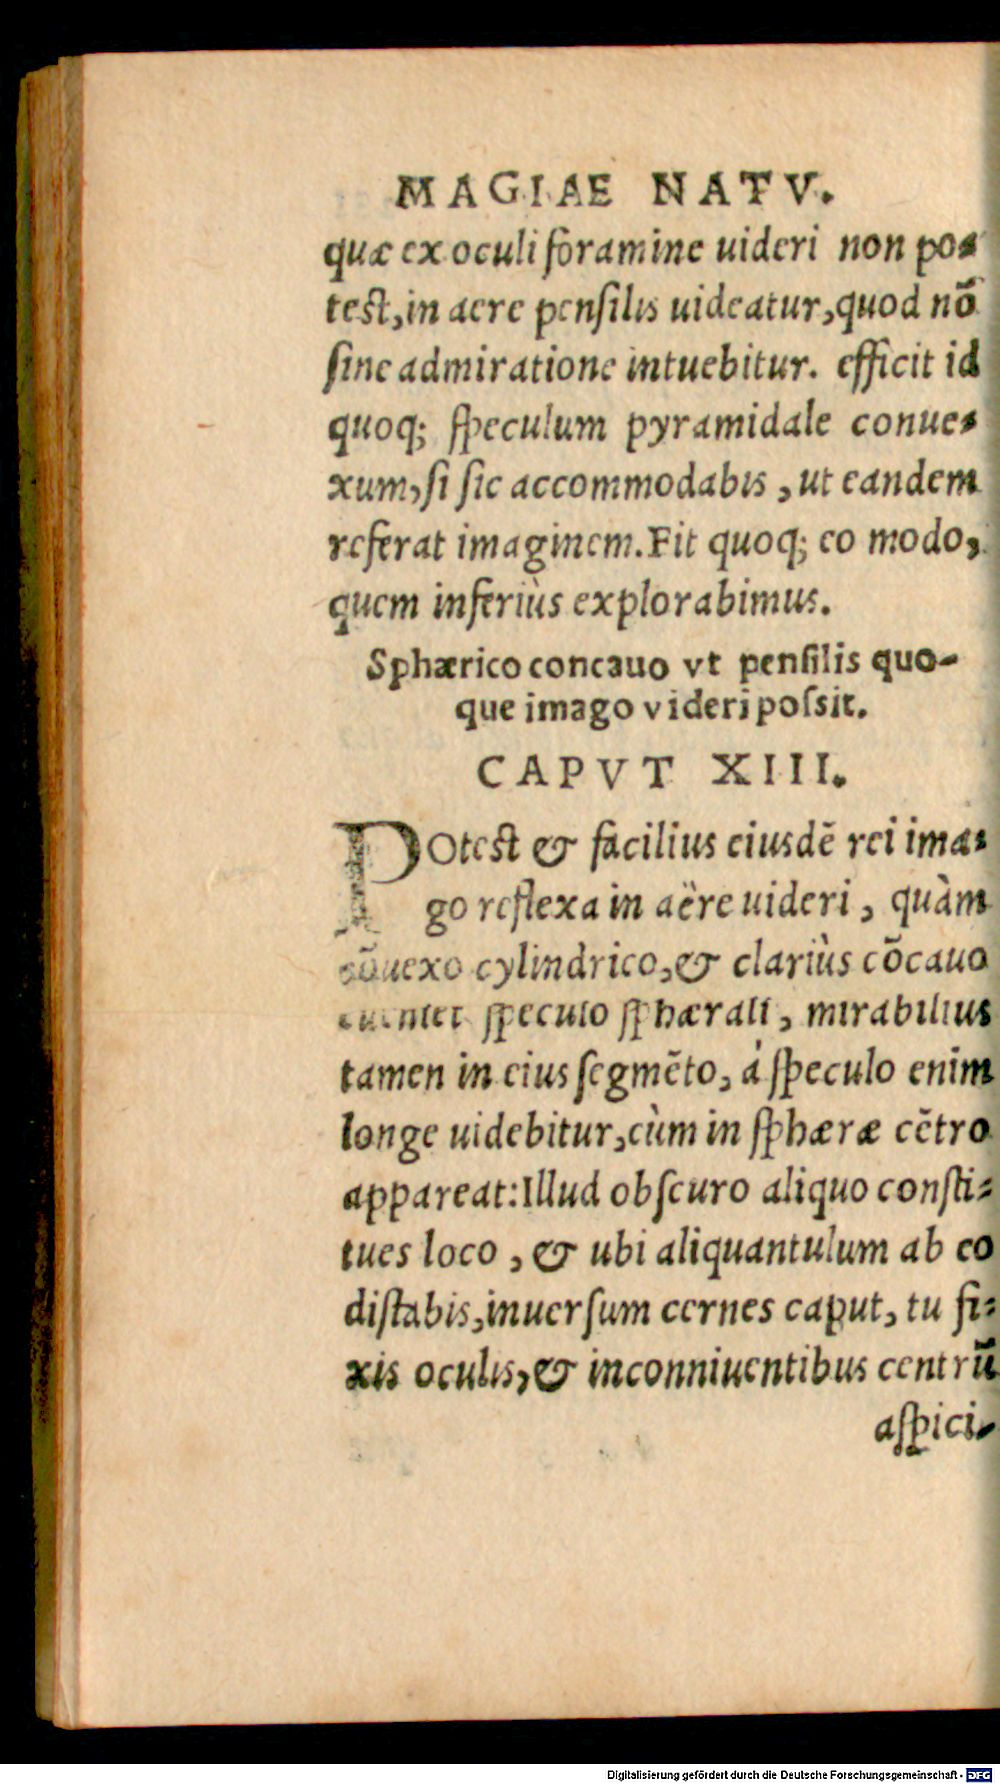 MAGIAE NATV.
quæ ex oculi foramine uideri non pos-
test, in aere pensilis uideatur, quod nō
sine admiratione intuebitur. efficit id
quoq; speculum pyramidale conue-
xum, si sic accommodabis, ut eandem
referat imaginem. Fit quoq; eo modo,
quem inferiùs explorabimus.
Sphærico concauo vt pensilis quo-
que imago videri possit.
CAPVT XIII.
POtest & facilius eiusdē rei ima-
go reflexa in aëre uideri, quàm
cōuexo cylindrico, & clariùs cōcauo
speculo sphærali, mirabilius
tamen in eius segmēto, à speculo enim
longe uidebitur, cùm in sphæræ cētro
appareat: Illud obscuro aliquo consti-
tues loco, & ubi aliquantulum ab eo
distabis, inuersum cernes caput, tu fi-
xis oculis, & inconniuentibus centrū
aspici-
Digitalisierung gefördert durch die Deutsche Forschungsgemeinschaft - DFG